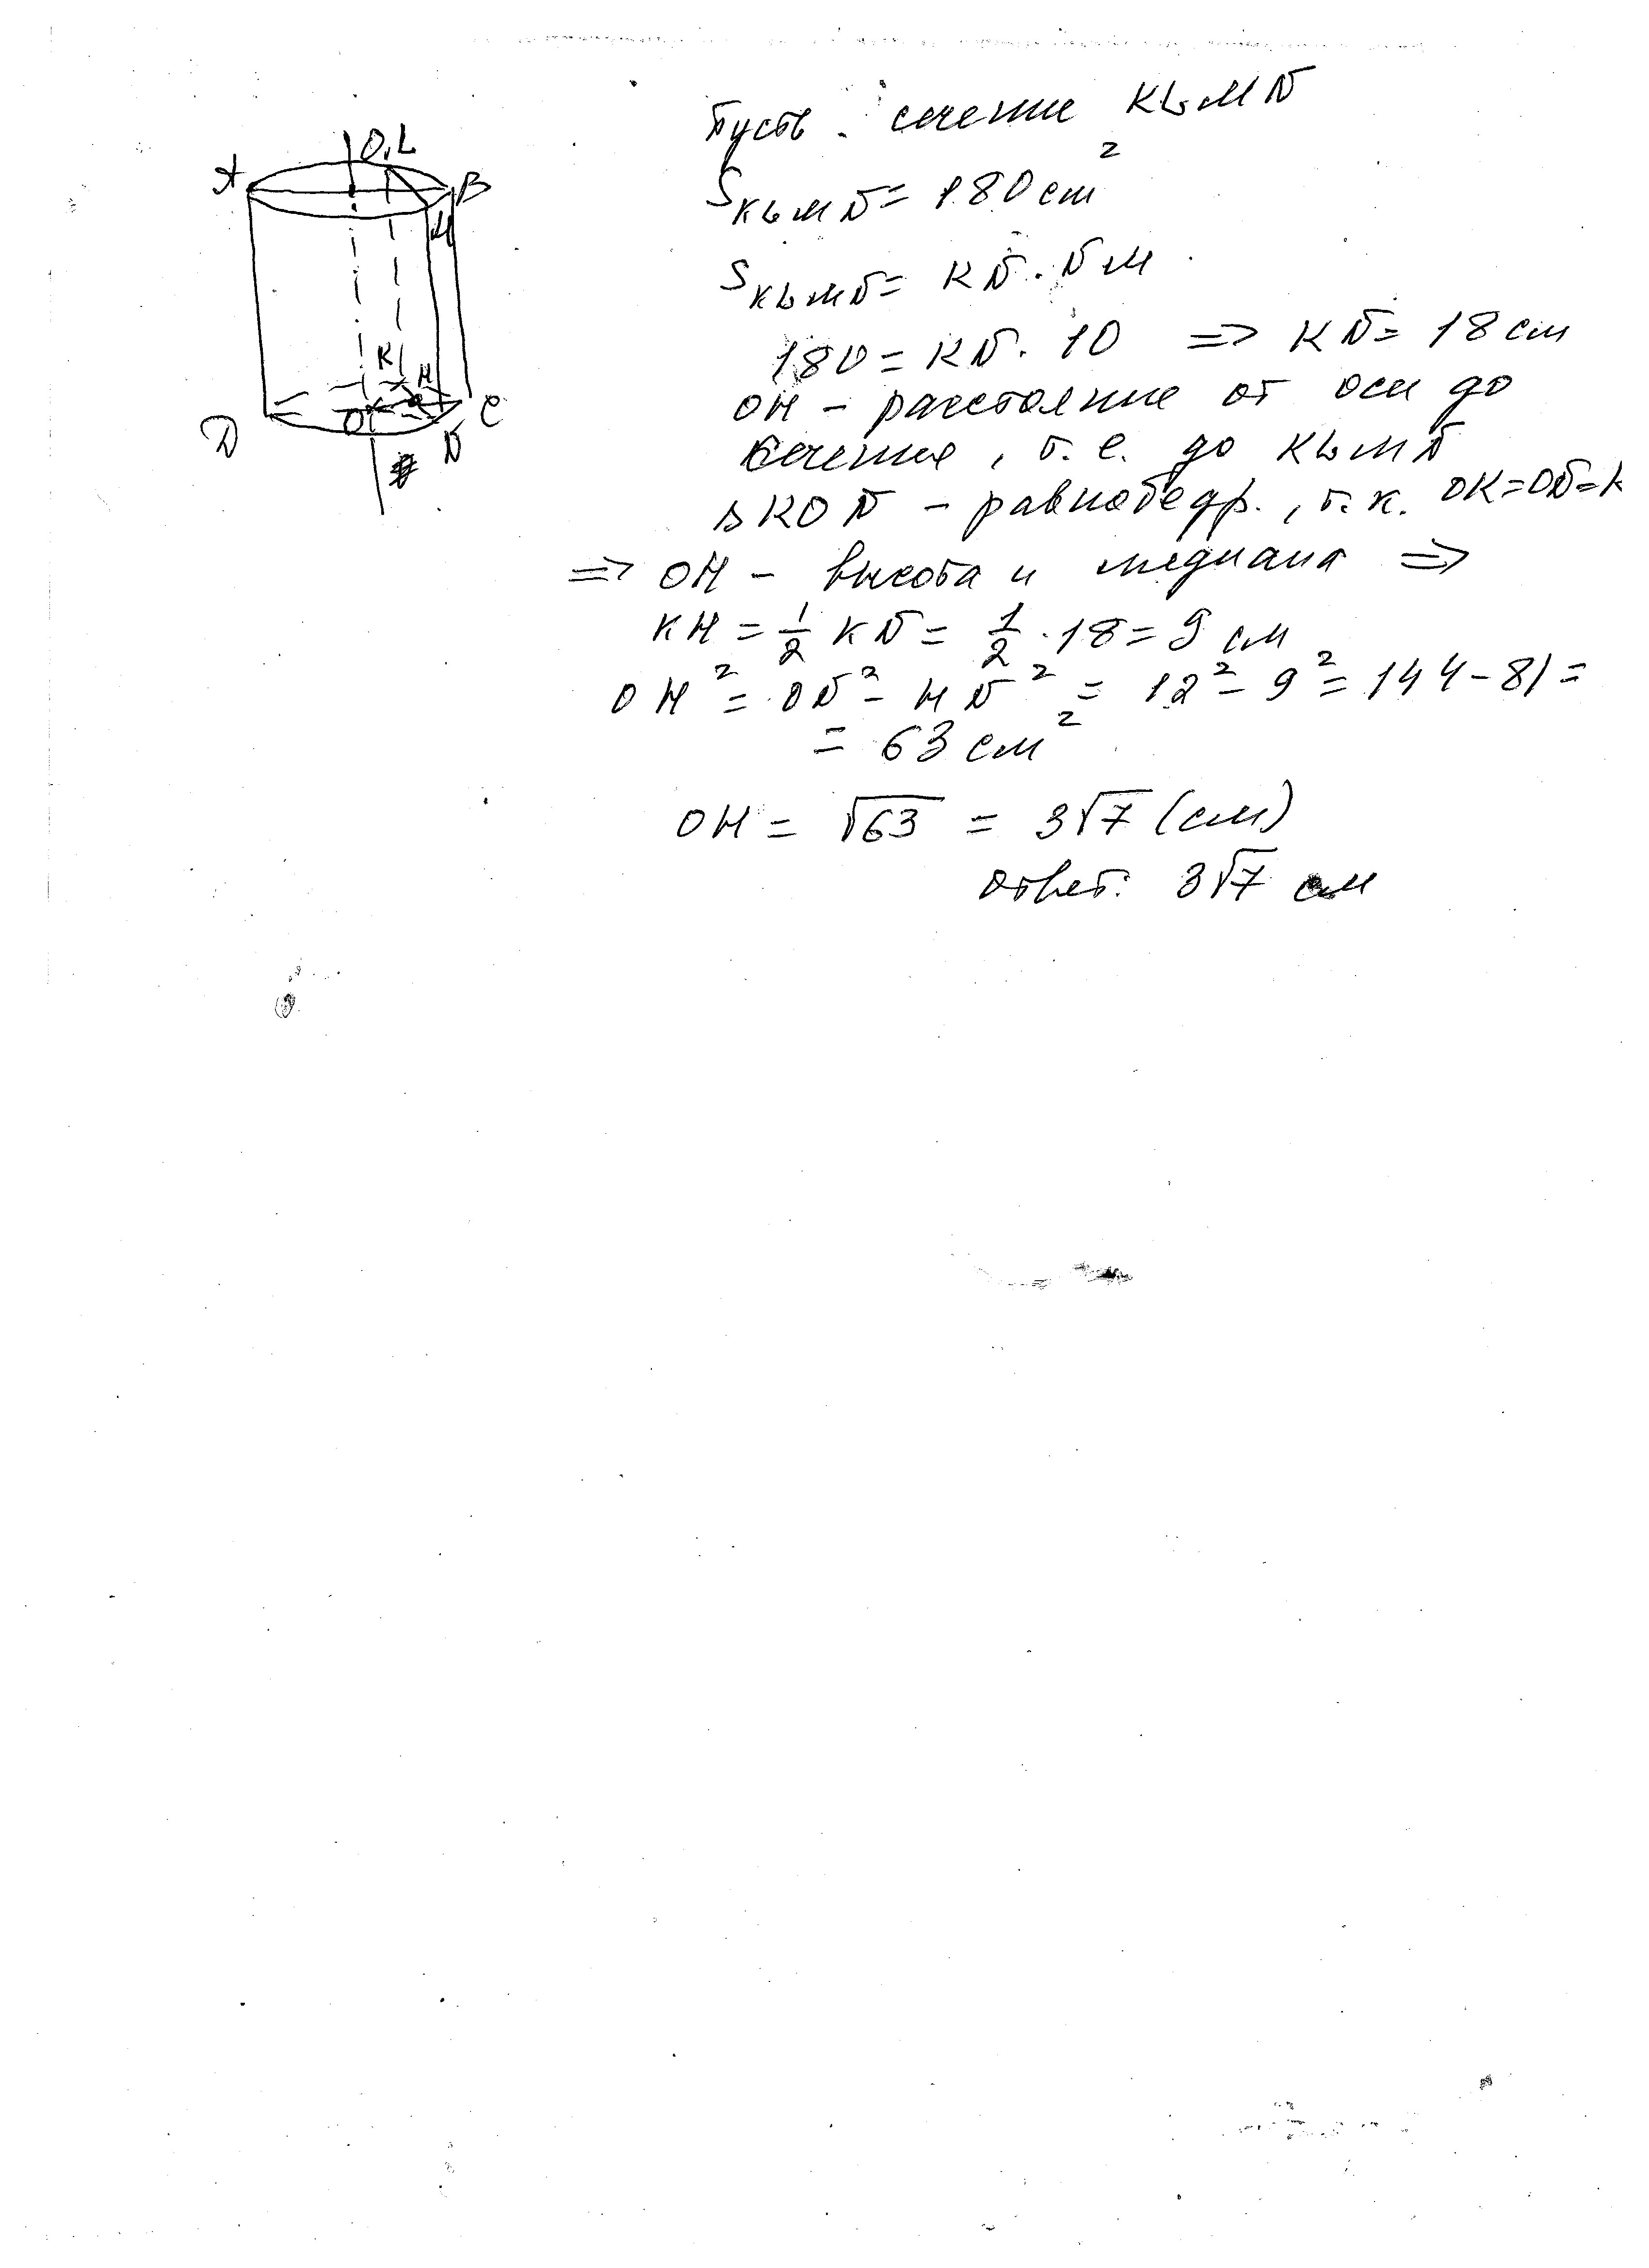 O₁ L
A
B
M
K
H
O
C
D
N
Пусть сечение KLMN
S KLMN = 180 см²
S KLMN = KN · NM
180 = KN · 10 => KN = 18 см
OH – расстояние от оси до
сечения, т. е. до KLMN
Δ KON – равнобедр., т. к. OK=ON=R
=> OH – высота и медиана =>
KH = 1/2 KN = 1/2 · 18 = 9 см
OH² = ON² – HN² = 12² – 9² = 144 – 81 =
= 63 см²
OH = √63 = 3√7 (см)
Ответ: 3√7 см